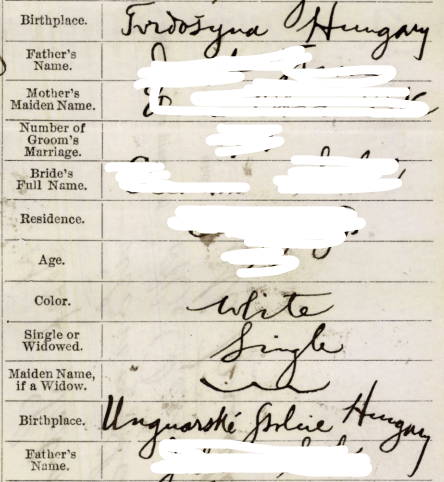 Birthplace. Tvrdošyna Hungary
Father's
Name.
Mother's
Maiden Name.
Number of
Groom's
Marriage.
Bride's
Full Name.
Residence.
Age.
Color. White
Single or
Widowed. Single
Maiden Name,
if a Widow.
Birthplace. Unguarské Hungary
Father's
Name.